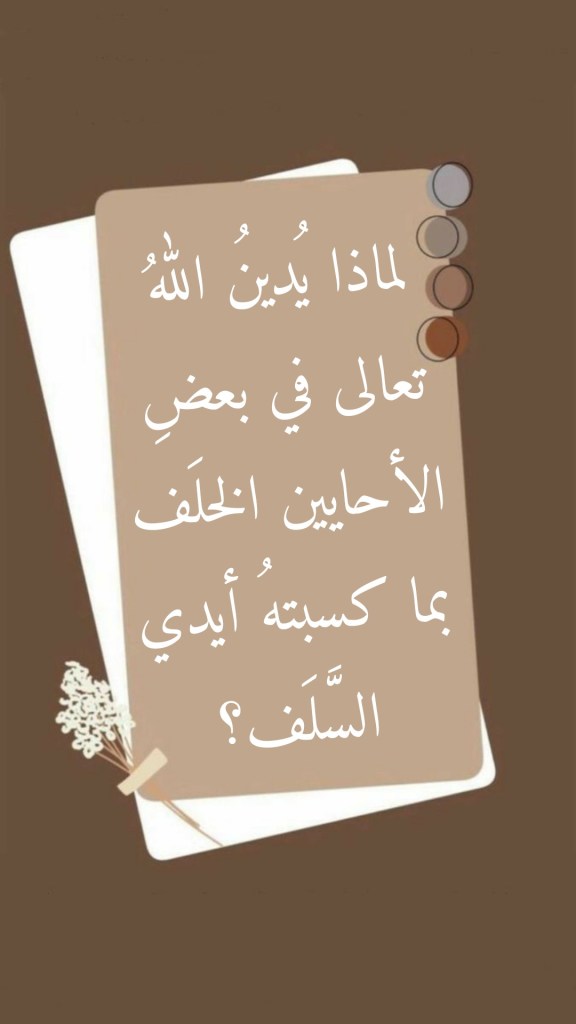 لماذا يُدينُ اللّٰهُ
تعالى في بعضِ
الأحايين الخلَف
بما كسبتهُ أيدي
السَّلَف؟